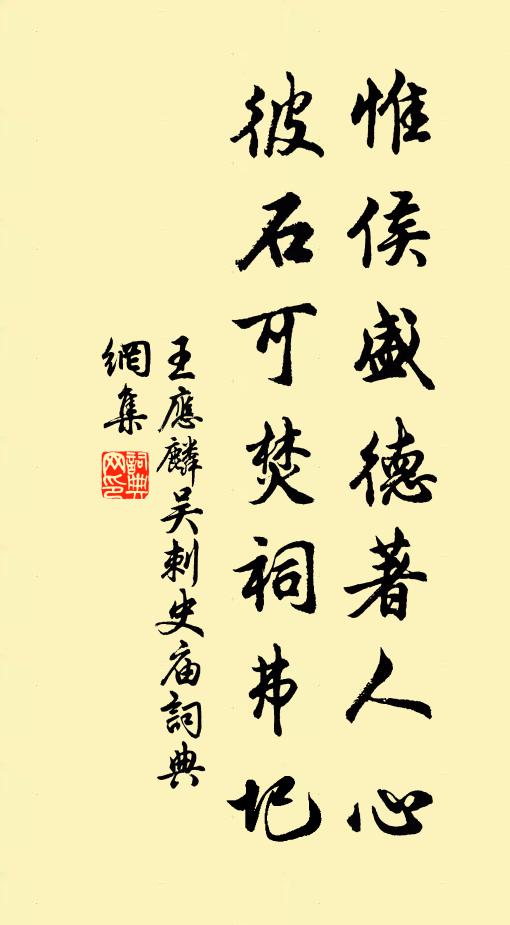 惟侯盛德著人心
彼石可焚祠弗圮
王應麟吳刺史庙詞典
網集